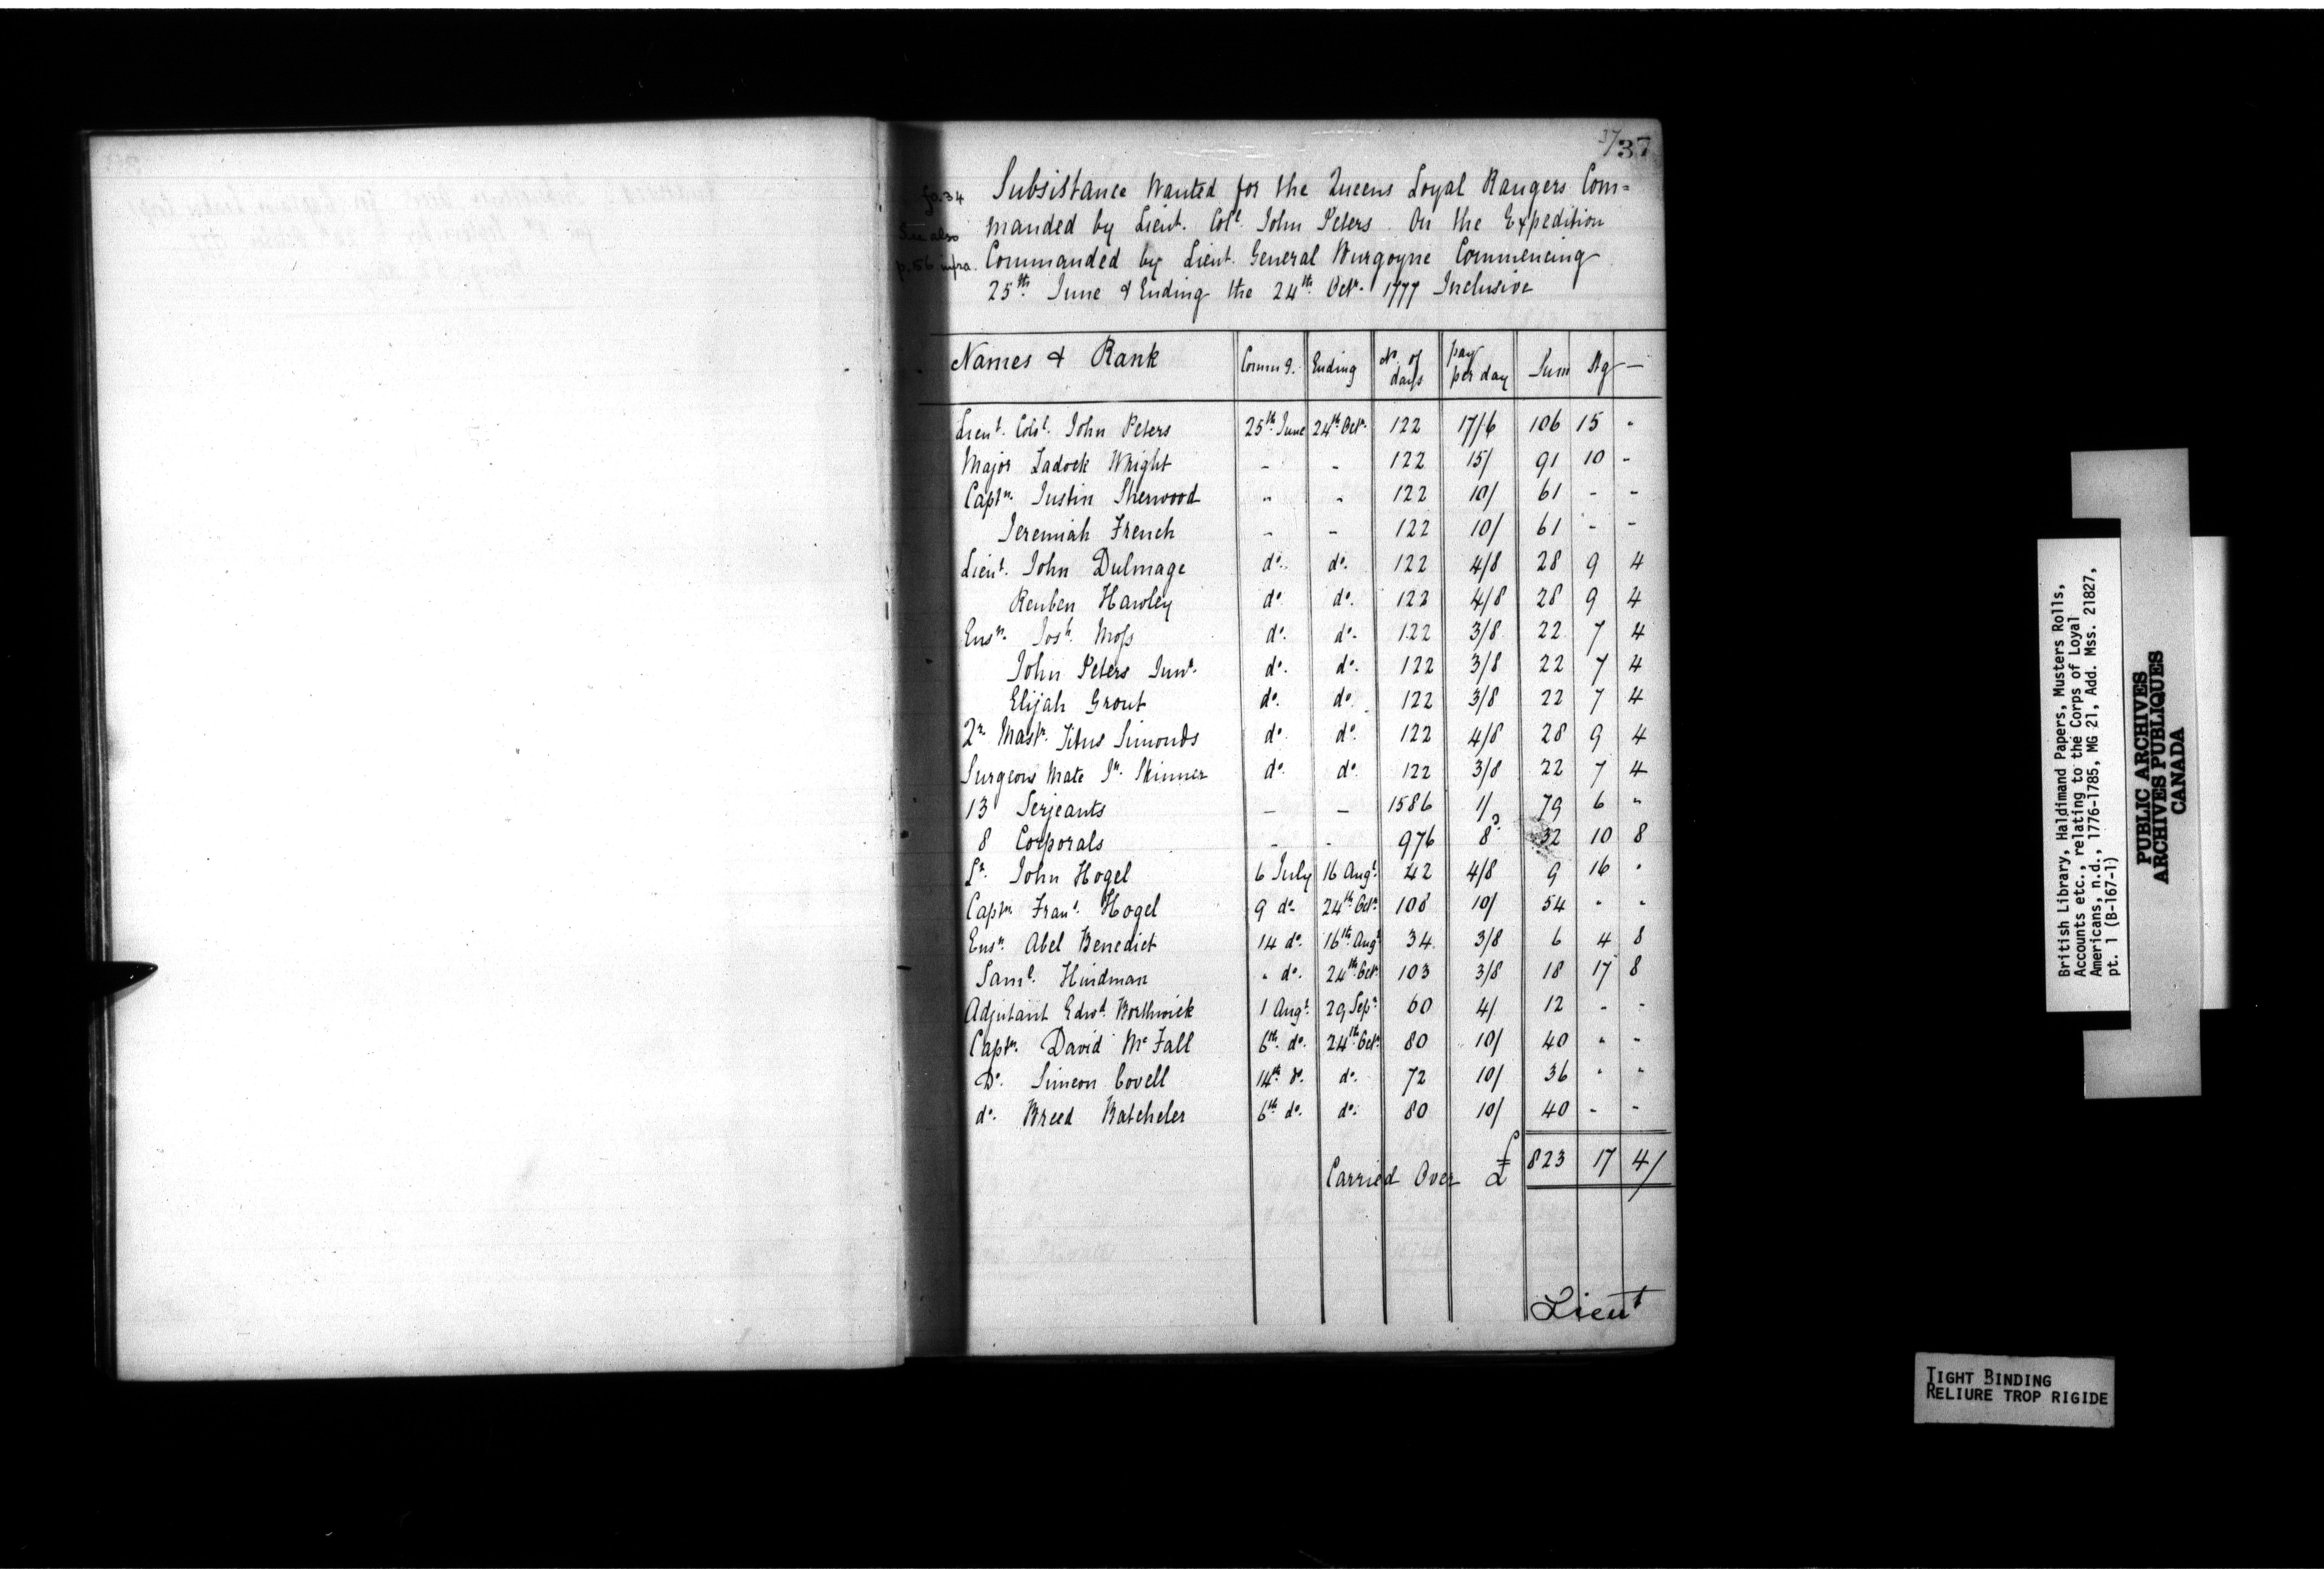 37/37
fo. 34
See also
p. 56 infra.
Subsistance Wanted for the Queens Loyal Rangers Com=
manded by Lieut. Colˡ. John Peters. On the Expedition
Commanded by Lieut. General Burgoyne Commencing
25ᵗʰ. June & Ending the 24ᵗʰ. Octʳ. 1777 Inclusive
Names & Rank | Comm g. | Ending | Nº. of days | pay per day | Sum | Stg | —
Lieuᵗ. Colˡ. John Peters | 25ᵗʰ. June | 24ᵗʰ Octʳ. | 122 | 17/6 | 106 | 15 | -
Major Zadock Wright | - | - | 122 | 15/ | 91 | 10 | -
Captⁿ. Justin Sherwood | - | - | 122 | 10/ | 61 | - | -
Jeremiah French | - | - | 122 | 10/ | 61 | - | -
Lieuᵗ. John Dulmage | dº. | dº. | 122 | 4/8 | 28 | 9 | 4
Reuben Hawley | dº. | dº. | 122 | 4/8 | 28 | 9 | 4
Ensⁿ. Josʰ. Moſs | dº. | dº. | 122 | 3/8 | 22 | 7 | 4
John Peters Junʳ. | dº. | dº. | 122 | 3/8 | 22 | 7 | 4
Elijah Grout | dº. | dº. | 122 | 3/8 | 22 | 7 | 4
Qʳ. Mastʳ. Titus Simonds | dº. | dº. | 122 | 4/8 | 28 | 9 | 4
Surgeons Mate Jⁿ. Skinner | dº. | dº. | 122 | 3/8 | 22 | 7 | 4
13 Serjeants | - | - | 1586 | 1/ | 79 | 6 | -
8 Corporals | - | - | 976 | 8ᵈ. | 32 | 10 | 8
Lᵗ. John Hogel | 6 July | 16 Augᵗ. | 42 | 4/8 | 9 | 16 | -
Captⁿ. Franˢ. Hogel | 9 dº. | 24ᵗʰ. Octʳ. | 108 | 10/ | 54 | - | -
Ensⁿ. Abel Benedict | 14 dº. | 16ᵗʰ. Augᵗ | 34 | 3/8 | 6 | 4 | 8
Samˡ. Hindman | " dº. | 24ᵗʰ. Octʳ. | 103 | 3/8 | 18 | 17 | 8
Adjutant Edwᵈ. Borthwick | 1 Augᵗ. | 29 Sepʳ. | 60 | 4/ | 12 | - | -
Captⁿ. David Mᶜ Fall | 6ᵗʰ. dº. | 24ᵗʰ. Octʳ. | 80 | 10/ | 40 | - | -
Dº. Simeon Covell | 14ᵗʰ. dº. | dº. | 72 | 10/ | 36 | - | -
dº. Breed Batcheler | 6ᵗʰ. dº. | dº. | 80 | 10/ | 40 | - | -
Carried Over £ | 823 | 17 | 4/
Lieuᵗ
British Library, Haldimand Papers, Musters Rolls,
Accounts etc., relating to the Corps of Loyal
Americans, n.d., 1776-1785, MG 21, Add. Mss. 21827,
pt. 1 (B-167-1)
PUBLIC ARCHIVES
ARCHIVES PUBLIQUES
CANADA
TIGHT BINDING
RELIURE TROP RIGIDE